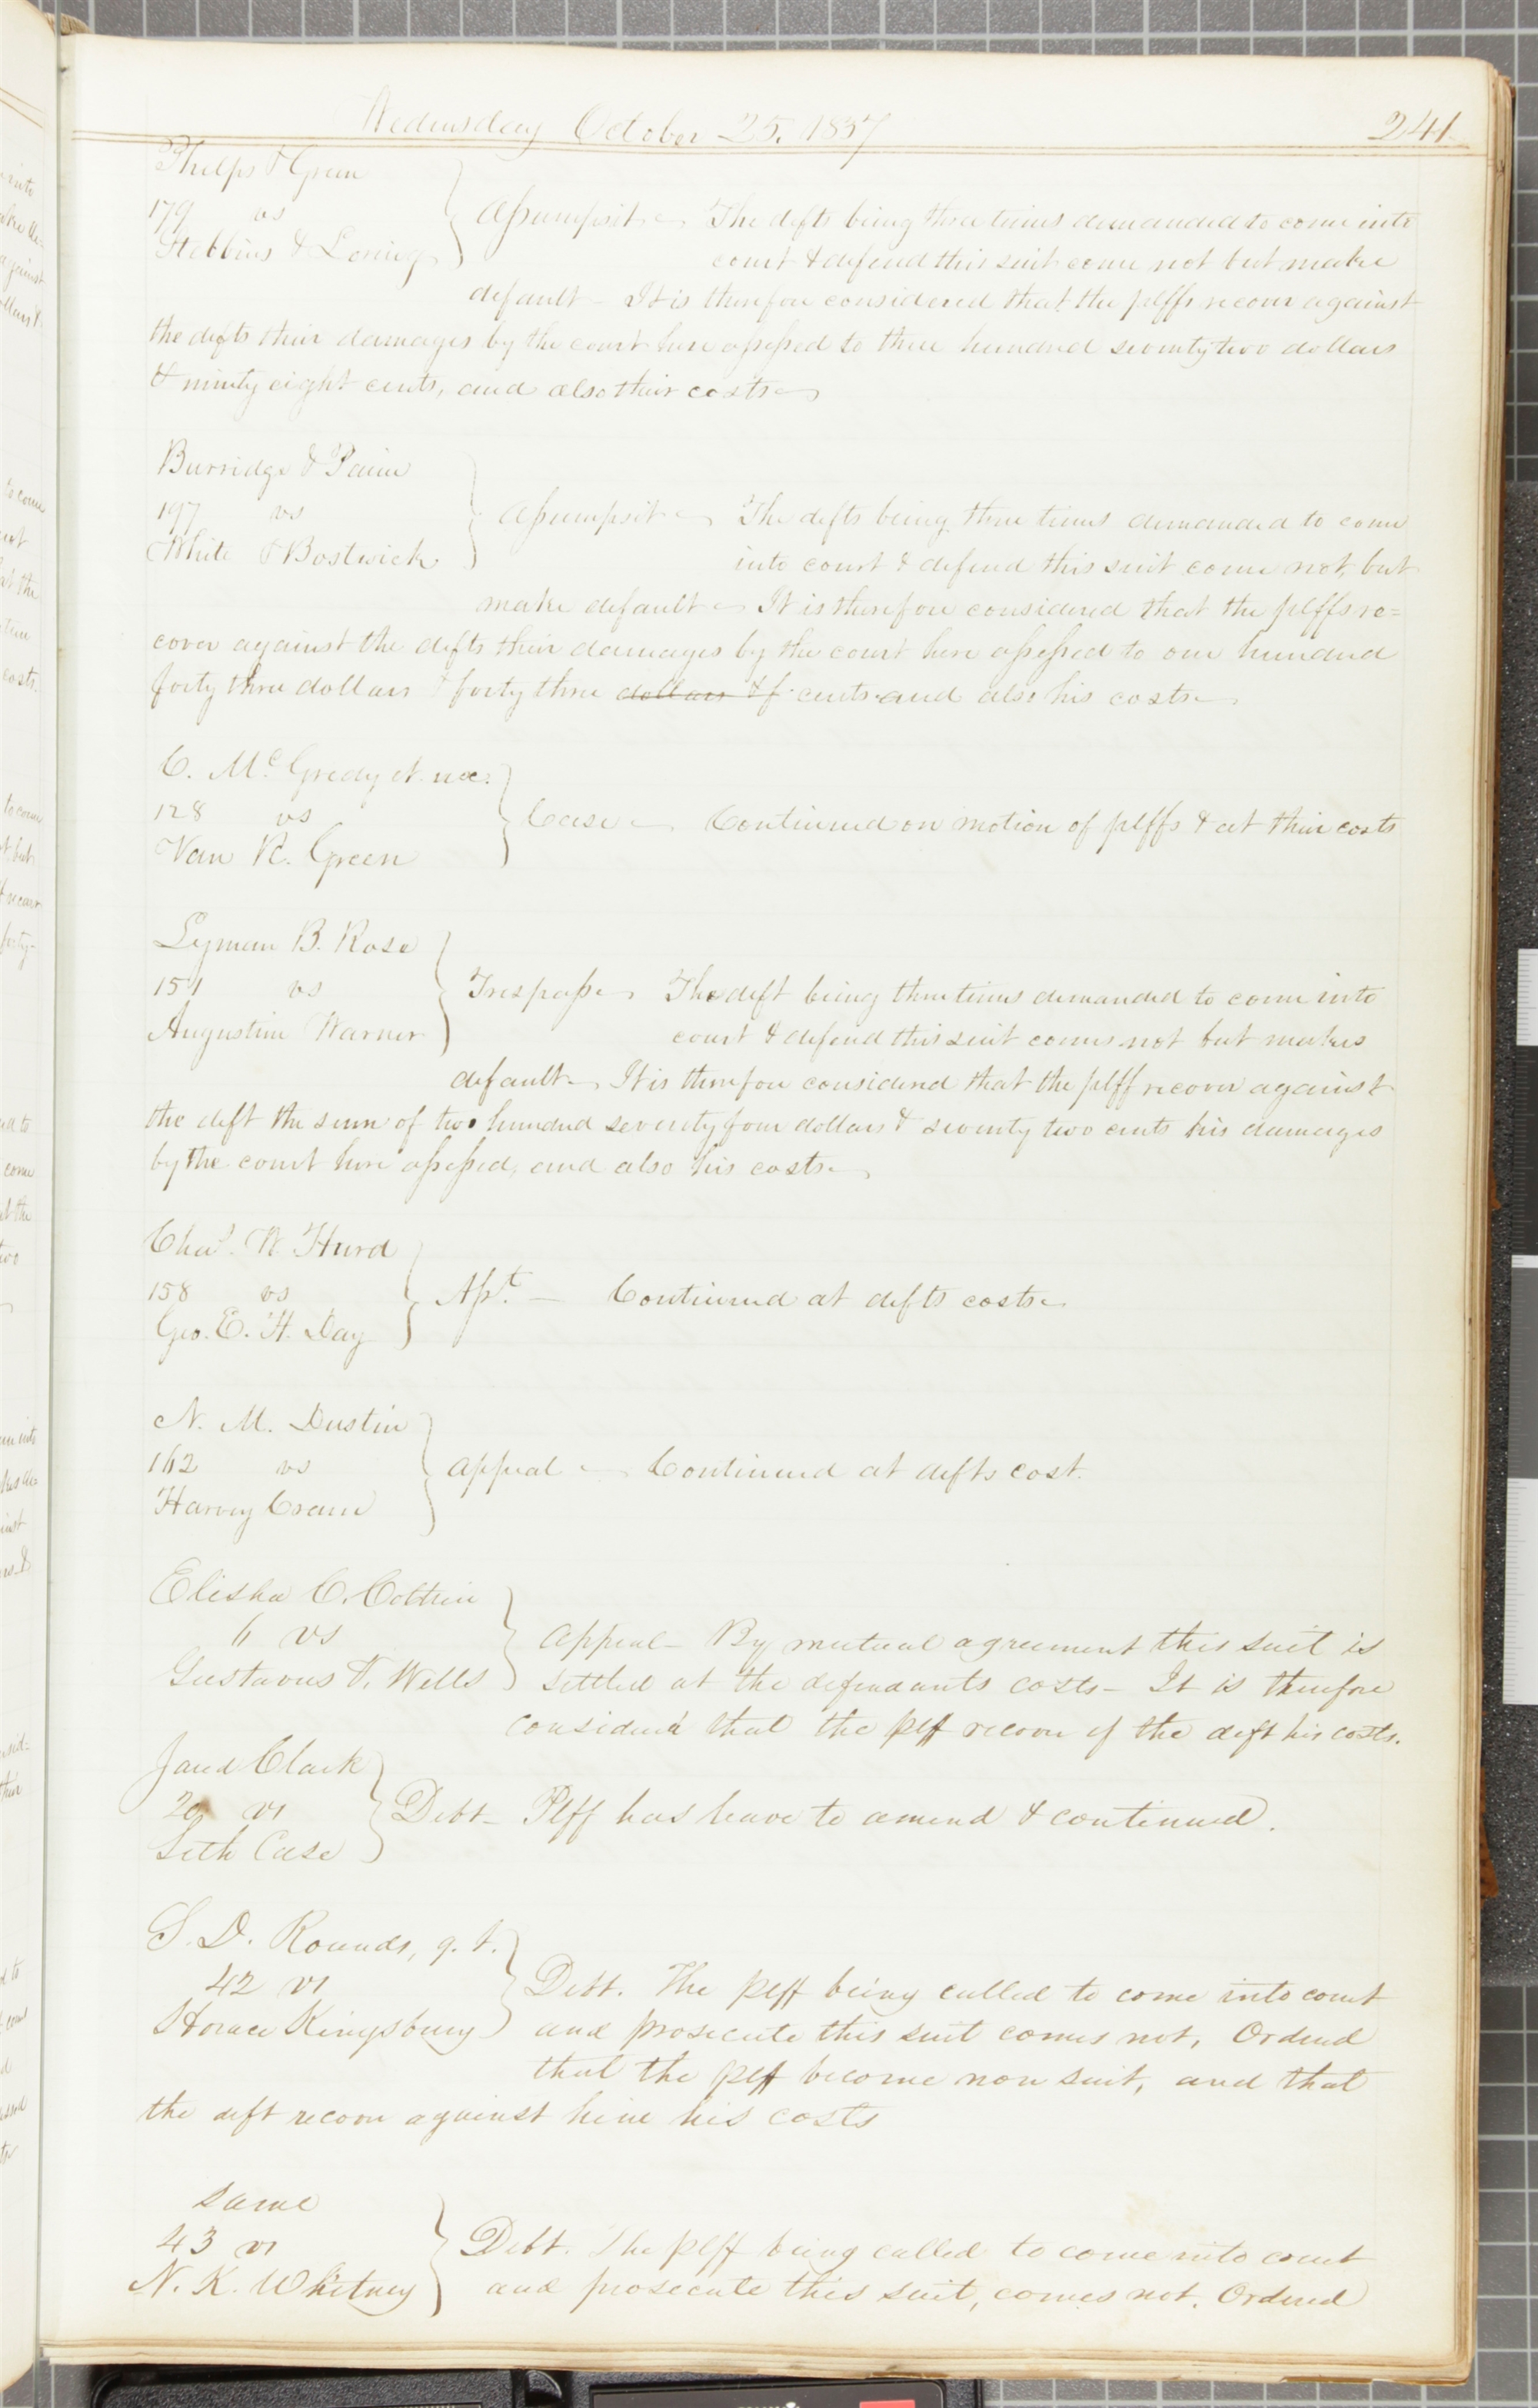 Wednesday October 25. 1837
241
Phelps & Green
179 vs
Stebbins & Loring
Assumpsit — The defts being three times demanded to come into
court & defend this suit come not but make
default — It is therefore considered that the plffs recover against
the defts their damages by the court here assessed to three hundred seventy two dollars
& ninety eight cents, and also their costs —
Burridge & Paine
197 vs
White & Bostwick
Assumpsit — The defts being three times demanded to come
into court & defend this suit come not, but
make default — It is therefore considered that the plffs re=
cover against the defts their damages by the court here assessed to one hundred
forty three dollars & forty three dollars & f cents and also his costs —
C. McGredy et. ux.
128 vs
Van R. Green
Case — Continued on motion of plffs & at their costs
Lyman B. Rose
151 vs
Augustine Warner
Trespass — The deft being three times demanded to come into
court & defend this suit comes not but makes
default — It is therefore considered that the plff recover against
the deft the sum of two hundred seventy four dollars & seventy two cents his damages
by the court here assessed, and also his costs —
Chas. W. Hurd
158 vs
Geo. E. H. Day
Asst. — Continued at defts costs —
N. M. Dustin
162 vs
Harvey Cram
Appeal — Continued at defts cost.
Elisha C. Cottrin
6 vs
Gustavus V. Wells
Appeal — By mutual agreement this suit is
settled at the defendants costs — It is therefore
considered that the plff recover of the deft his costs.
Jared Clark
20 vs
Seth Case
Debt — Plff has leave to amend & continued.
S. D. Rounds, q. t.
42 vs
Horace Kingsbury
Debt. The plff being called to come into court
and prosecute this suit comes not, Ordered
that the plff become non suit, and that
the deft recover against him his costs
Same
43 vs
N. K. Whitney
Debt. The plff being called to come into court
and prosecute this suit, comes not. Ordered